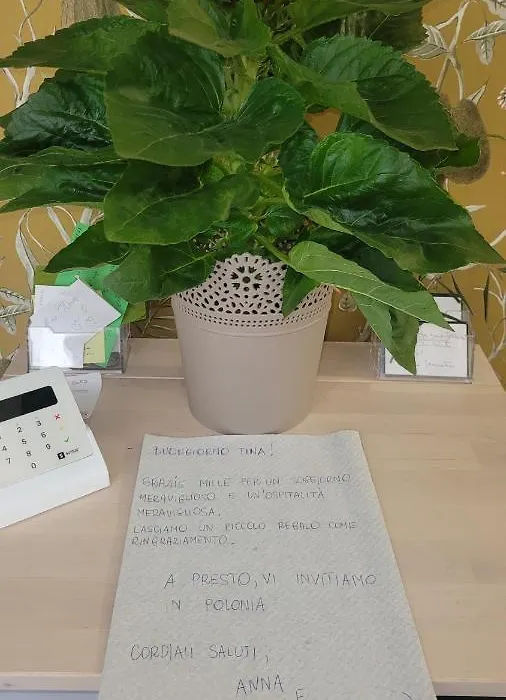 BUONGIORNO TINA!
GRAZIE MILLE PER UN SOGGIORNO
MERAVIGLIOSO E UN'OSPITALITÀ
MERAVIGLIOSA.
LASCIAMO UN PICCOLO REGALO COME
RINGRAZIAMENTO..
A PRESTO, VI INVITIAMO
IN POLONIA
CORDIALI SALUTI,
ANNA E